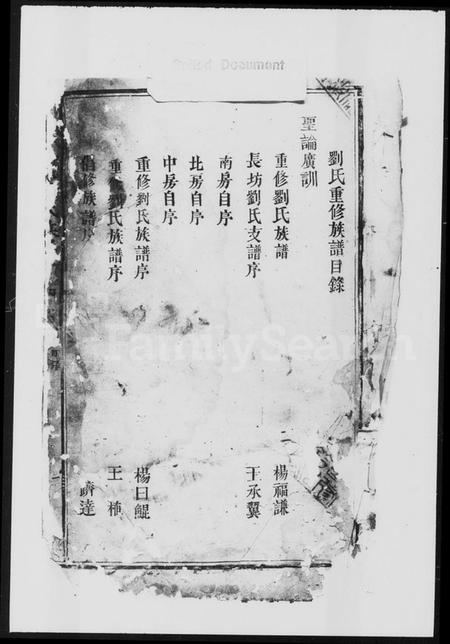 Spliced Document
劉氏重修族譜目錄
聖諭廣訓
重修劉氏族譜 楊福謙
長坊劉氏支譜序 王承翼
南房自序
北房自序
中房自序
重修劉氏族譜序 楊曰鯤
重修劉氏族譜序 王植
修族譜序 躋達
FamilySearch